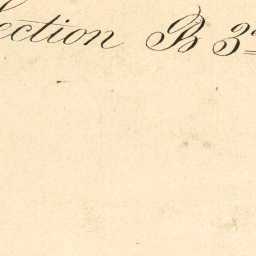 Section B 3d